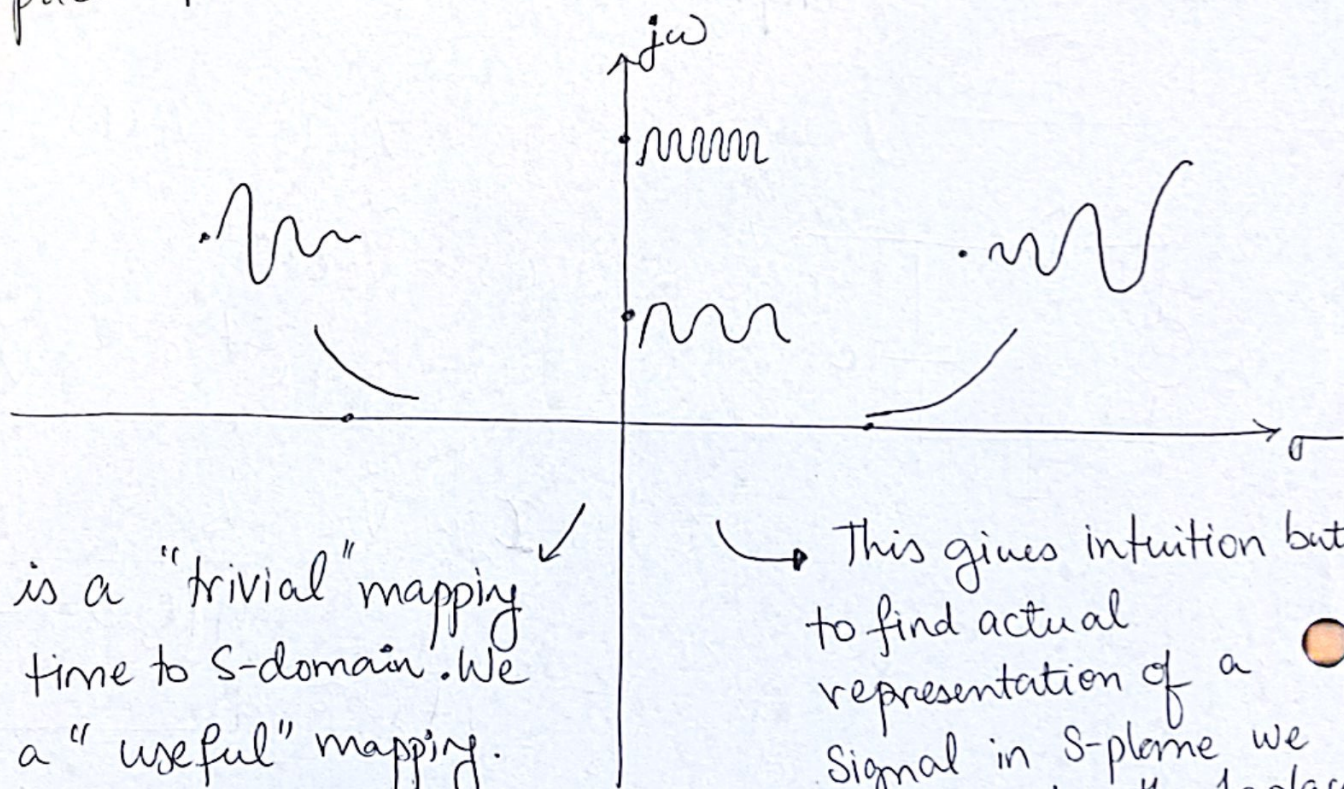 jω
σ
is a "trivial" mapping
time to S-domain. We
a "useful" mapping.
This gives intuition but
to find actual
representation of a
Signal in S-plane we